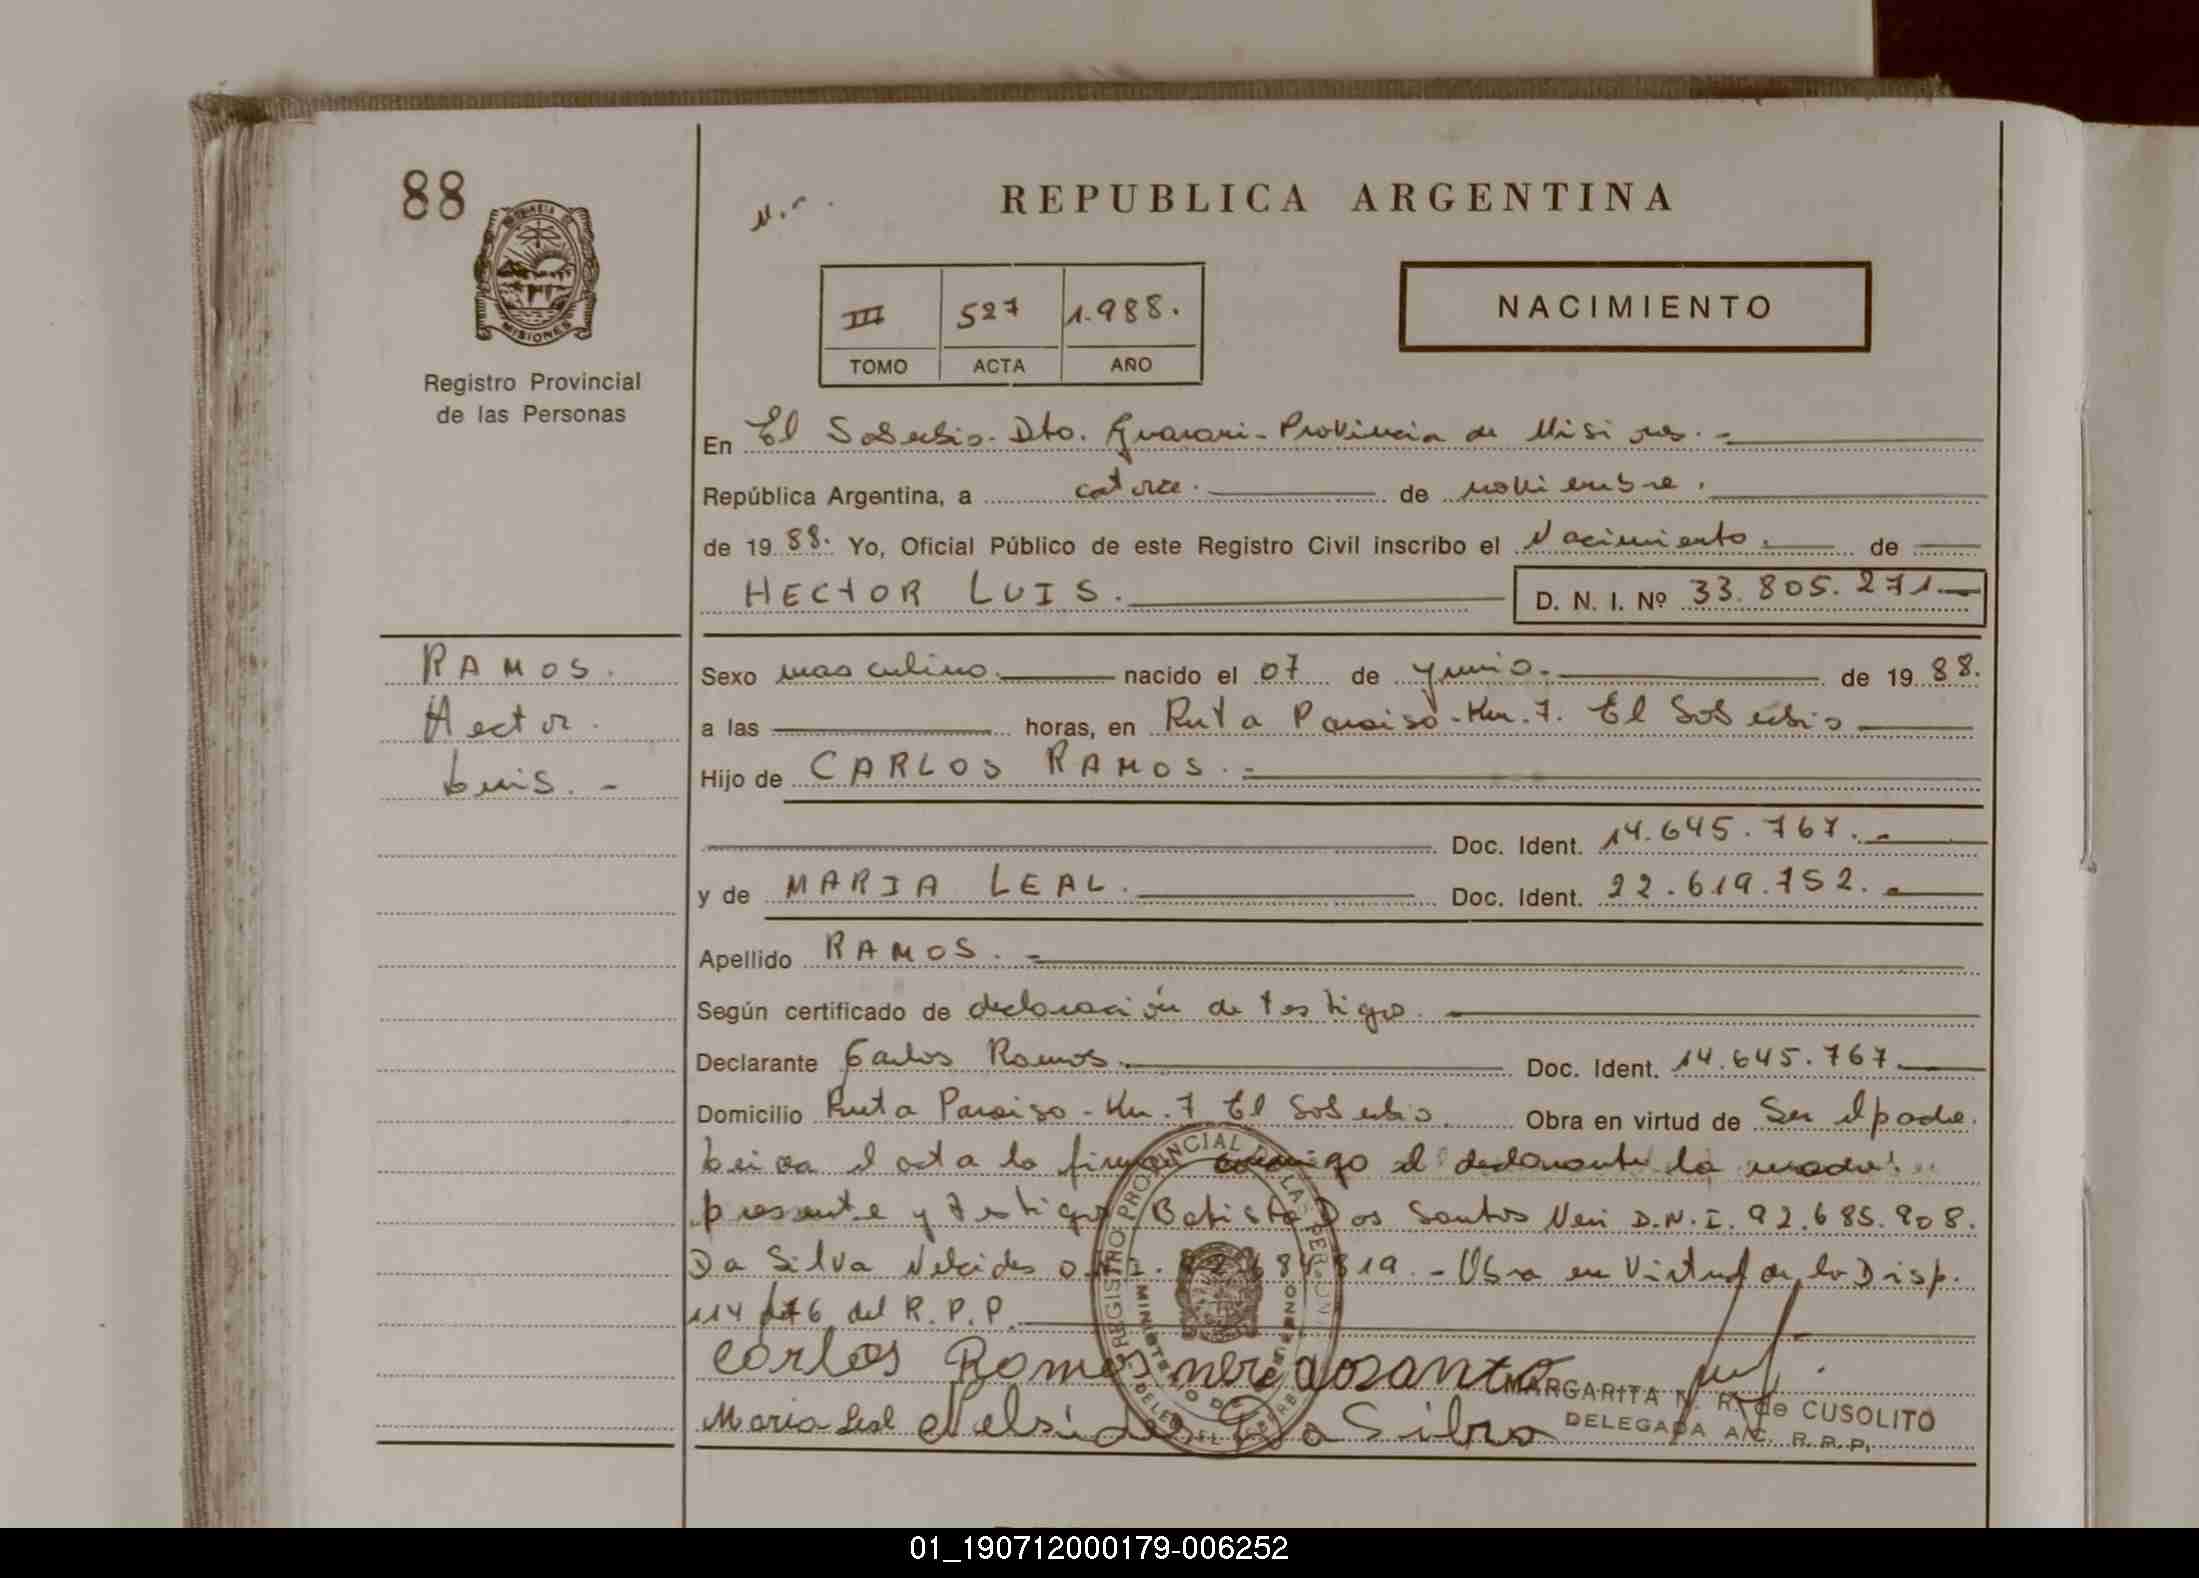 88
MISIONES
Registro Provincial
de las Personas
REPUBLICA ARGENTINA
III 527 1.988.
TOMO ACTA AÑO
NACIMIENTO
En El Soberbio - Dto. Guarani - Provincia de Misiones. -
República Argentina, a catorce. de noviembre.
de 19 88. Yo, Oficial Público de este Registro Civil inscribo el Nacimiento. de
HECTOR LUIS. D. N. I. Nº 33.805.271
RAMOS.
Hector.
Luis. -
Sexo masculino. nacido el 07 de junio. de 19 88.
a las horas, en Ruta Paraiso - Km. 7. El Soberbio
Hijo de CARLOS RAMOS. -
Doc. Ident. 14.645.767. -
y de MARIA LEAL. Doc. Ident. 22.619.752. -
Apellido RAMOS. -
Según certificado de declaración de testigo.
Declarante Carlos Ramos. Doc. Ident. 14.645.767
Domicilio Ruta Paraiso - Km. 7 El Soberbio. Obra en virtud de Ser el padre.
el acta la firman conmigo el declarante la madre
presente y testigos Batista Dos Santos Neri D.N.I. 92.685.908.
Da Silva Nelcides - Obra en Virtud de la Disp.
114/76 del R.P.P.
Carlos Ramos
Maria Leal Nelsides Da Silva
MARGARITA N. R. de CUSOLITO
DELEGADA A/C. R.P.P.
REGISTRO PROVINCIAL DE LAS PERSONAS
MINISTERIO DE GOBIERNO
01_190712000179-006252